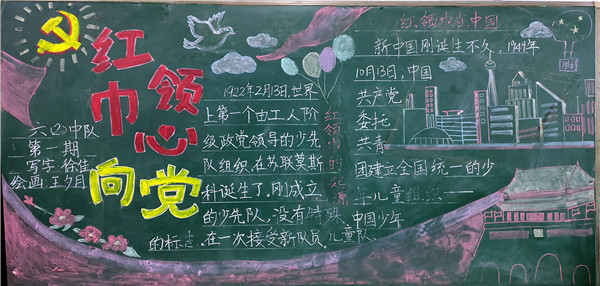 红领巾心向党
六(2)中队
第一期
写字 徐佳
绘画.王夕月
红领巾的起源
1922年2月13日,世界
上第一个由工人阶
级政党领导的少先
队组织,在苏联莫斯
科诞生了,刚成立
的少先队,没有
的标志.在一次接受新队员,儿童队
红领巾与中国
新中国刚诞生不久,1949年
10月13日,中国
共产党
委托
共青
团建立全国统一的少
年儿童组织——
中国少年